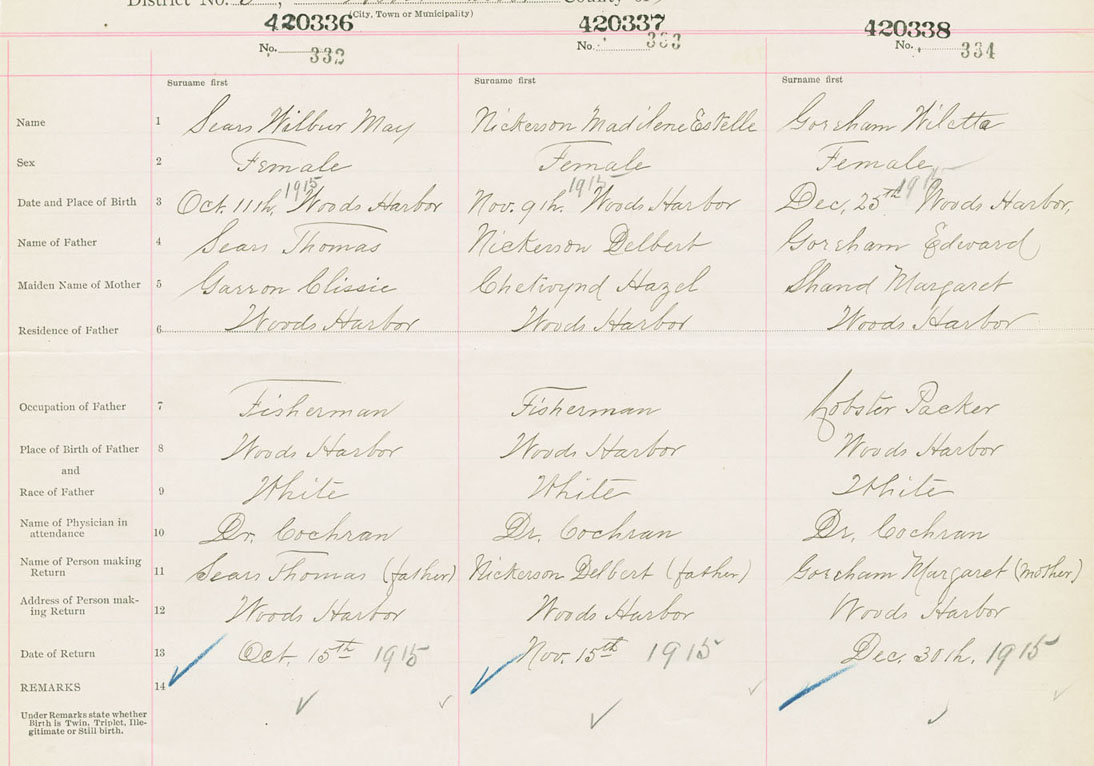 District No.
(City, Town or Municipality)
420336 420337 420338
No. 332 No. 333 No. 334
Surname first Surname first Surname first
Name 1 Sears Wilbur May Nickerson Madilene Estelle Goreham Wiletta
Sex 2 Female Female Female
1915 1915 191
Date and Place of Birth 3 Oct. 11th, Woods Harbor Nov. 9th. Woods Harbor Dec, 25th Woods Harbor,
Name of Father 4 Sears Thomas Nickerson Delbert Goreham Edward
Maiden Name of Mother 5 Garron Clissie Chetwynd Hazel Shand Margaret
Residence of Father 6 Woods Harbor Woods Harbor Woods Harbor
Occupation of Father 7 Fisherman Fisherman Lobster Packer
Place of Birth of Father 8 Woods Harbor Woods Harbor Woods Harbor
and
Race of Father 9 White White White
Name of Physician in
attendance 10 Dr. Cochran Dr. Cochran Dr. Cochran
Name of Person making
Return 11 Sears Thomas (father) Nickerson Delbert (father) Goreham Margaret (mother)
Address of Person mak-
ing Return 12 Woods Harbor Woods Harbor Woods Harbor
Date of Return 13 Oct. 15th 1915 Nov. 15th 1915 Dec. 30th, 1915
REMARKS 14
Under Remarks state whether
Birth is Twin, Triplet, Ille-
gitimate or Still birth.